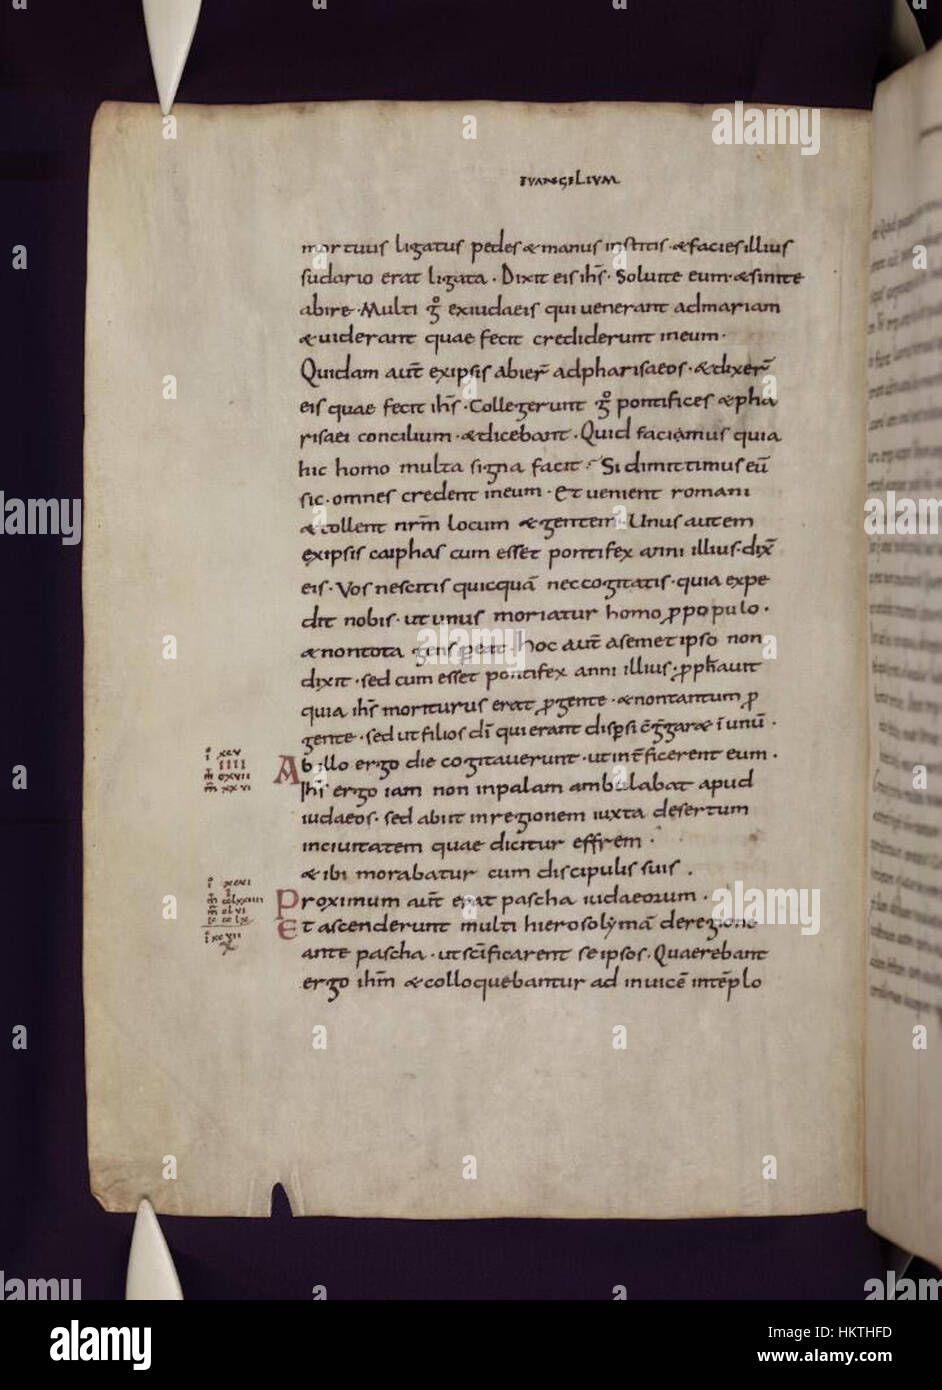 EVANGELIVM
mortuus ligatus pedes & manus institis · & facies illius
sudario erat ligata · Dixit eis ihs̄ · Soluite eum · & sinite
abire · Multi g̊ exiudaeis qui uenerant admariam
& uiderant quae fecit crediderunt ineum ·
Quidam aut̄ exipsis abier̄ adpharisaeos · & dixer̄
eis quae fecit ihs̄ · Collegerunt g̊ pontifices & pha
risaei concilium · & dicebant · Quid faciamus quia
hic homo multa signa facit · Si dimittimus eū
sic · omnes credent ineum · Et uenient romani
& tollent nrm̄ locum & gentem · Unus autem
exipsis caiphas cum esset pontifex anni illius · dix̄
eis · Vos nescitis quicquā nec cogitatis · quia expe
dit nobis · ut unus moriatur homo ꝓ populo ·
& non tota gens pereat · hoc aut̄ asemet ipso non
dixit · sed cum esset pontifex anni illius · ꝓph̄auit
quia ihs̄ moriturus erat ꝓ gente · & nontantum ꝓ
gente · sed ut filios dī qui erant disp̱si c̄g̱gar& ī unū ·
Ab illo ergo die cogitauerunt · ut int̄ficerent eum ·
Ihs̄ ergo iam non inpalam ambulabat apud
iudaeos · sed abiit inregionem iuxta desertum
inciuitatem quae dicitur effrem ·
& ibi morabatur cum discipulis suis .
Proximum aut̄ erat pascha iudaeorum ·
Et ascenderunt multi hierosolymā deregione
ante pascha · ut sc̄ificarent se ipsos · Quaerebant
ergo ihm̄ & colloquebantur ad inuicē intēplo
ī xcv
IIII
m̄ cxvii
m̄ xxvi
ī xcvi
ī xcvii
alamy
Image ID: HKTHFD
www.alamy.com